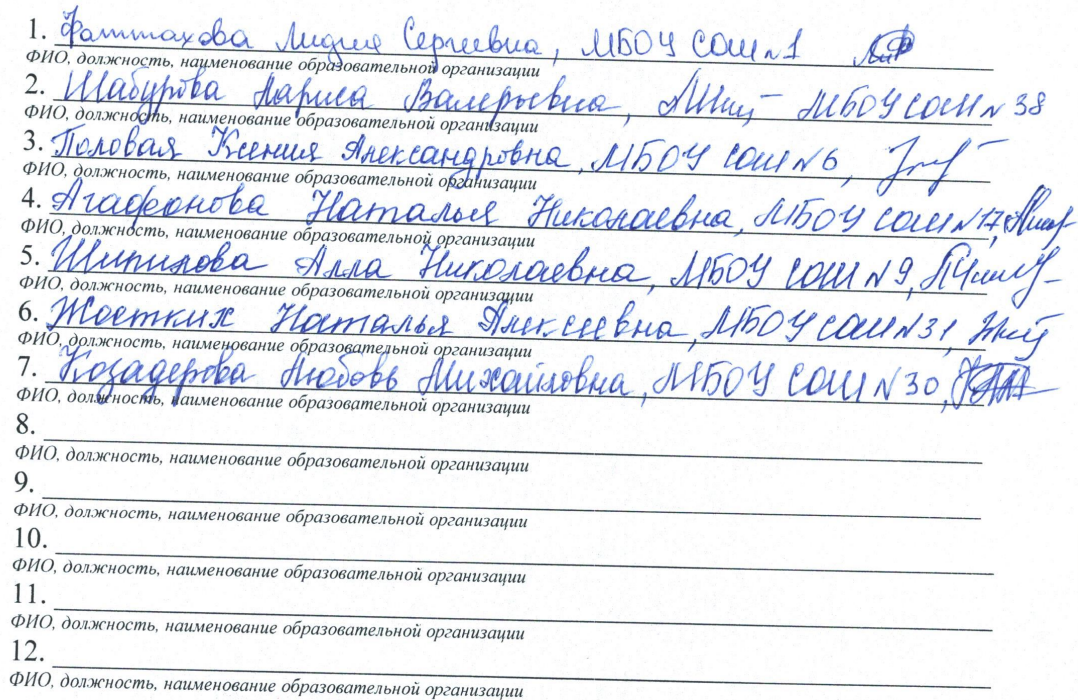 1. Фаттахова Лидия Сергеевна, МБОУ СОШ №1
ФИО, должность, наименование образовательной организации
2. Шабурова Лариса Валерьевна, МБОУ СОШ № 38
ФИО, должность, наименование образовательной организации
3. Половая Ксения Александровна, МБОУ СОШ №6,
ФИО, должность, наименование образовательной организации
4. Агафонова Наталья Николаевна, МБОУ СОШ №17,
ФИО, должность, наименование образовательной организации
5. Шипилова Алла Николаевна, МБОУ СОШ №9,
ФИО, должность, наименование образовательной организации
6. Жостких Наталья Алексеевна, МБОУ СОШ №31,
ФИО, должность, наименование образовательной организации
7. Козадерова Любовь Михайловна, МБОУ СОШ №30,
ФИО, должность, наименование образовательной организации
8.
ФИО, должность, наименование образовательной организации
9.
ФИО, должность, наименование образовательной организации
10.
ФИО, должность, наименование образовательной организации
11.
ФИО, должность, наименование образовательной организации
12.
ФИО, должность, наименование образовательной организации